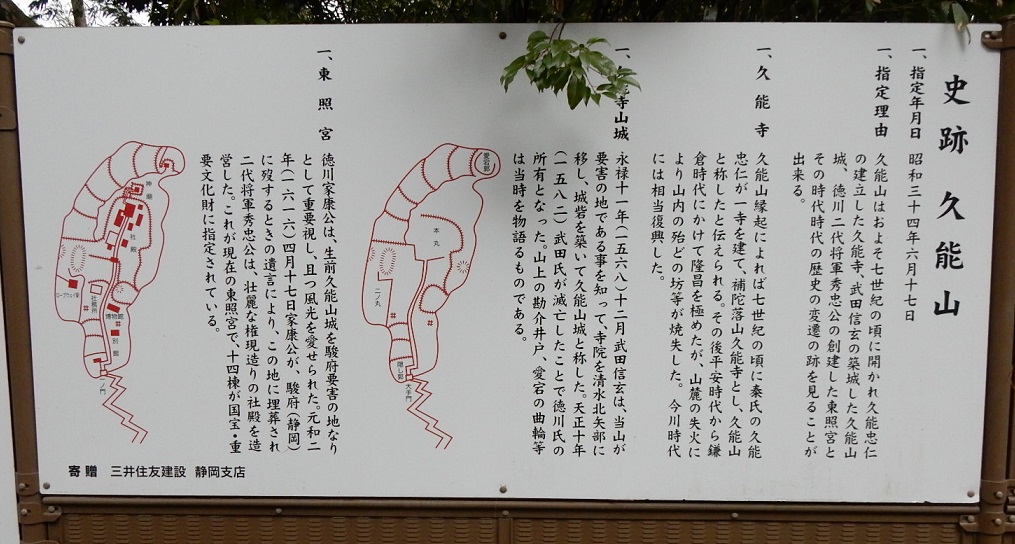 史跡 久能山
一、指定年月日 昭和三十四年六月十七日
一、指定理由 久能山はおよそ七世紀の頃に開かれ久能忠仁
の建立した久能寺、武田信玄の築城した久能山
城、徳川二代将軍秀忠公の創建した東照宮と
その時代時代の歴史の変遷の跡を見ることが
出来る。
一、久能寺 久能山縁起によれば七世紀の頃に秦氏の久能
忠仁が一寺を建て、補陀落山久能寺とし、久能山
と称したと伝えられる。その後平安時代から鎌
倉時代にかけて隆昌を極めたが、山麓の失火に
より山内の殆どの坊等が焼失した。今川時代
には相当復興した。
一、能寺山城 永禄十一年(一五六八)十二月武田信玄は、当山が
要害の地である事を知って、寺院を清水北矢部に
移し、城砦を築いて久能山城と称した。天正十年
(一五八二)武田氏が滅亡したことで徳川氏の
所有となった。山上の勘介井戸、愛宕の曲輪等
は当時を物語るものである。
愛宕郭
本丸
二ノ丸
隠し郭
大手門
一、東照宮 徳川家康公は、生前久能山城を駿府要害の地なり
として重要視し、且つ風光を愛せられた。元和二
年(一六一六)四月十七日家康公が、駿府(静岡)
に歿するときの遺言により、この地に埋葬され
二代将軍秀忠公は、壮麗な権現造りの社殿を造
営した。これが現在の東照宮で、十四棟が国宝・重
要文化財に指定されている。
神廟
社殿
ロープウェイ駅
社務所
博物館
別館
一ノ門
寄贈 三井住友建設 静岡支店